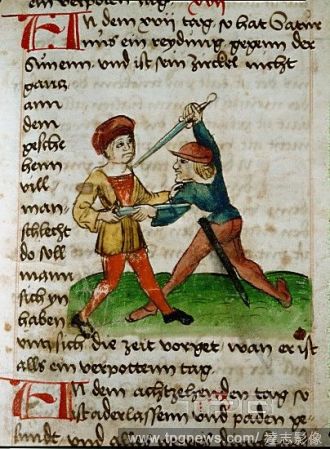 ein verpoten tag
An dem xvii tag so hat Satur
nus ein reydung gegenn der
Sunenn und ist sein zirckel nicht
gantz
ann
dem
gesche
henn
vill
man-
schlecht
do soll
mann
sich yn
haben
unnd sich die zeit vorget wan er ist
alls ein verpottenn tag
An dem achtzehenden tag so
ist aderlassenn und paden ge
sundt und all
www.tpgnews.com/ 達志影像